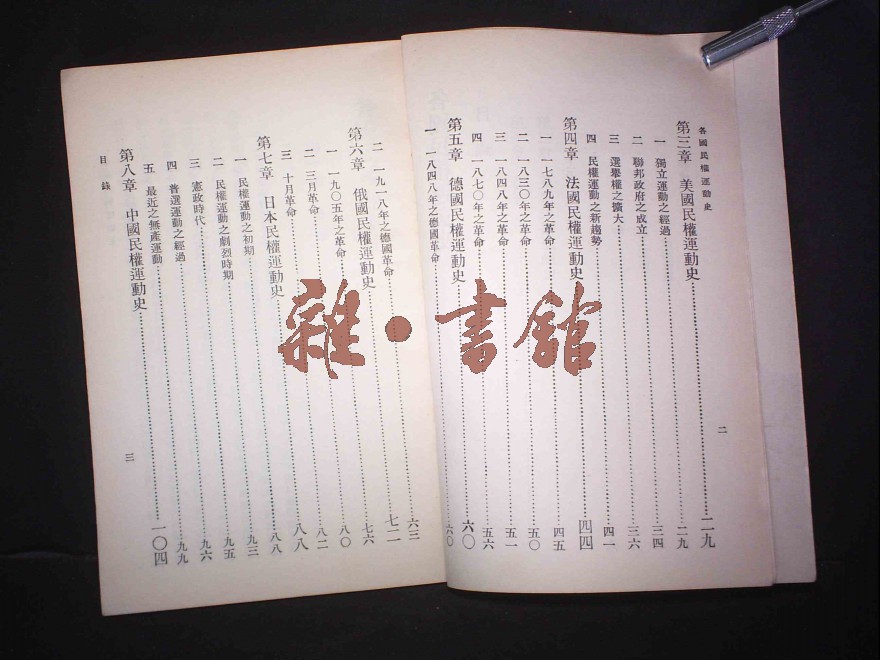 各國民權運動史
第三章 美國民權運動史……二九
一 獨立運動之經過……二九
二 聯邦政府之成立……三四
三 選舉權之擴大……三六
四 民權運動之新趨勢……四一
第四章 法國民權運動史……四四
一 一七八九年之革命……四五
二 一八三〇年之革命……五〇
三 一八四八年之革命……五一
四 一八七〇年之革命……五六
第五章 德國民權運動史……六〇
一 一八四八年之德國革命……六〇
二
二 一九一八年之德國革命……六三
第六章 俄國民權運動史……七二
一 一九〇五年之革命……七六
二 三月革命……八〇
三 十月革命……八二
第七章 日本民權運動史……八八
一 民權運動之初期……八八
二 民權運動之劇烈時期……九三
三 憲政時代……九五
四 普選運動之經過……九六
五 最近之無產運動……九九
第八章 中國民權運動史……一〇四
目錄
三
雜·書館